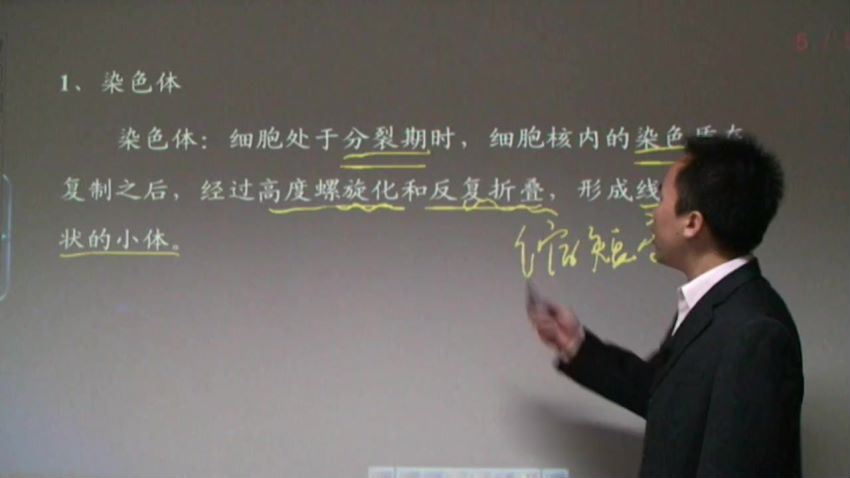 1、染色体
染色体：细胞处于分裂期时，细胞核内的染色质在
复制之后，经过高度螺旋化和反复折叠，形成线
状的小体。
缩短